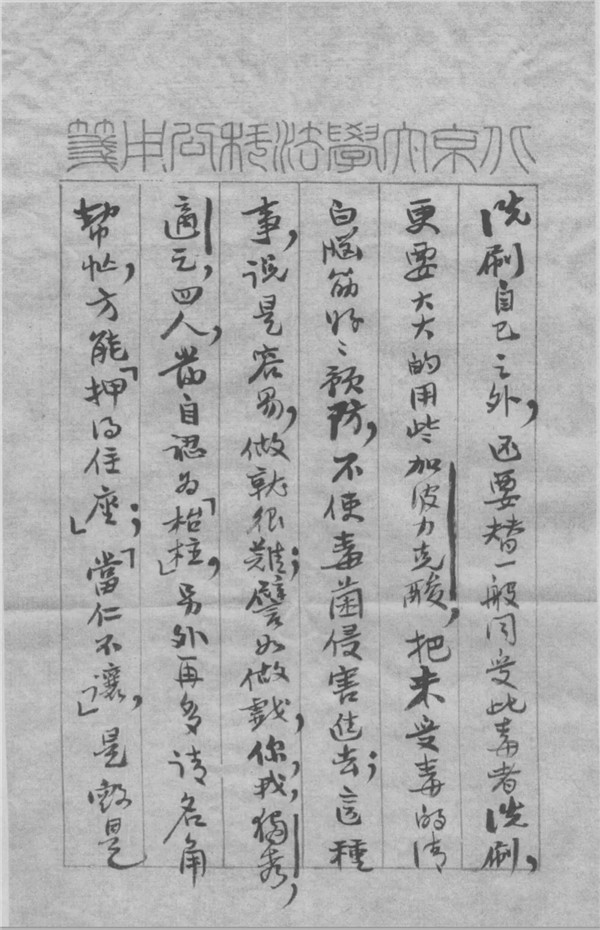 北京大學法科公用箋
洗刷自己之外，还要替一般同受此毒者洗刷，
更要大大的用些加波力克酸，把未受毒的清
白腦筋好々預防，不使毒菌侵害進去；這種
事，说是容易，做就很難；譬如做戲，你，我，獨秀，
適之，四人，當自認为「枱柱」，另外再多请名角
幫忙，方能「押得住座」；「當仁不讓」，是毁是